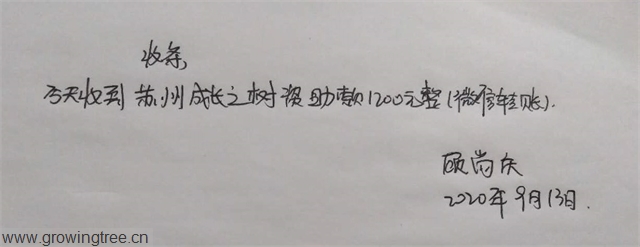 收条,
今天收到苏州成长之树资助款1200元整(微信转账).
顾尚庆
2020年9月13日.
www.growingtree.cn